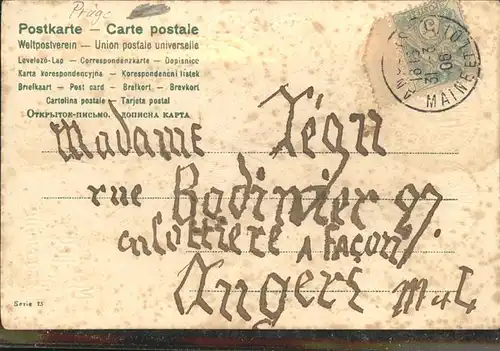 Prage
Postkarte — Carte postale
Weltpostverein — Union postale universelle
Levelező-Lap — Correspondenzkarte — Dopisnice
Karta korespondencyjna — Korespondenční lístek
Briefkaart — Post card — Brefkort — Brevkort
Cartolina postale — Tarjeta postal
Открытое-письмо. Дописна карта
MAINE ET
Madame Légu
rue Bodinier 97.
culottiere a façon
Angers M et L
Serie 75